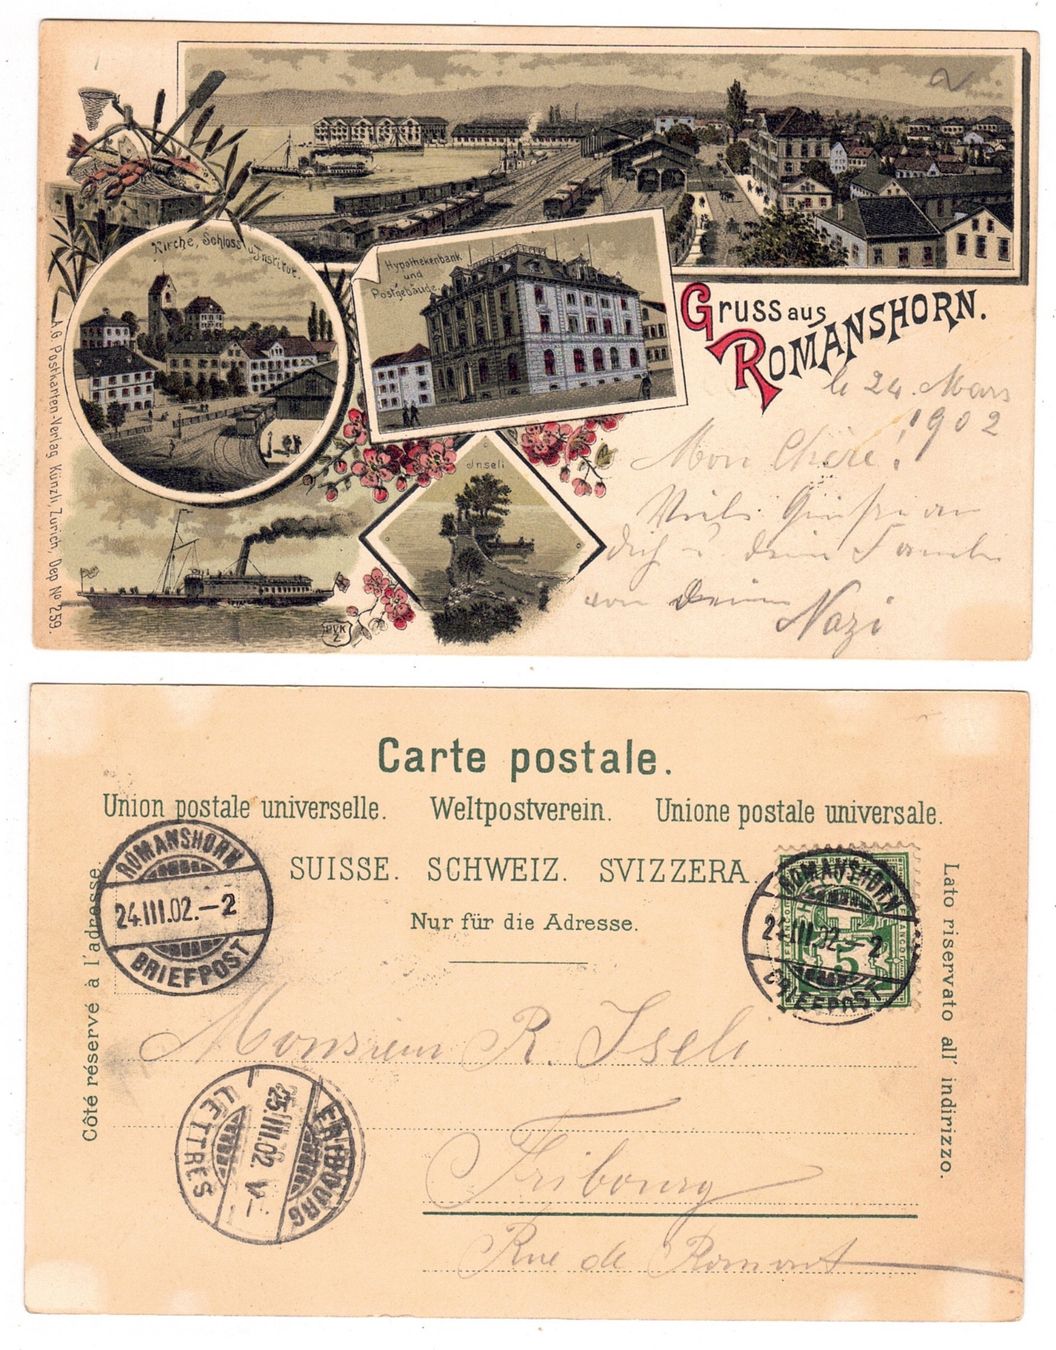 Kirche, Schloss Institut.
Hypothekenbank
und
Postgebäude.
Gruss aus
Romanshorn.
le 24. Mars
1902
Mon Chère!
Viele Grüsse an
dich u. deine Familie
von Deinem
Nazi
Inseli
PVK
Z
A.G. Postkarten-Verlag Künzli, Zürich, Dep No 259.
Carte postale.
Union postale universelle. Weltpostverein. Unione postale universale.
SUISSE. SCHWEIZ. SVIZZERA.
Nur für die Adresse.
Côté réservé à l'adresse.
Lato riservato all' indirizzo.
ROMANSHORN
24.III.02.–2
BRIEFPOST
ROMANSHORN
24.III.02.–2
BRIEFPOST
FRANCO
5
Monsieur R. Iseli
Fribourg
Rue de Romont
FRIBOURG
25.III.02. V–
LETTRES